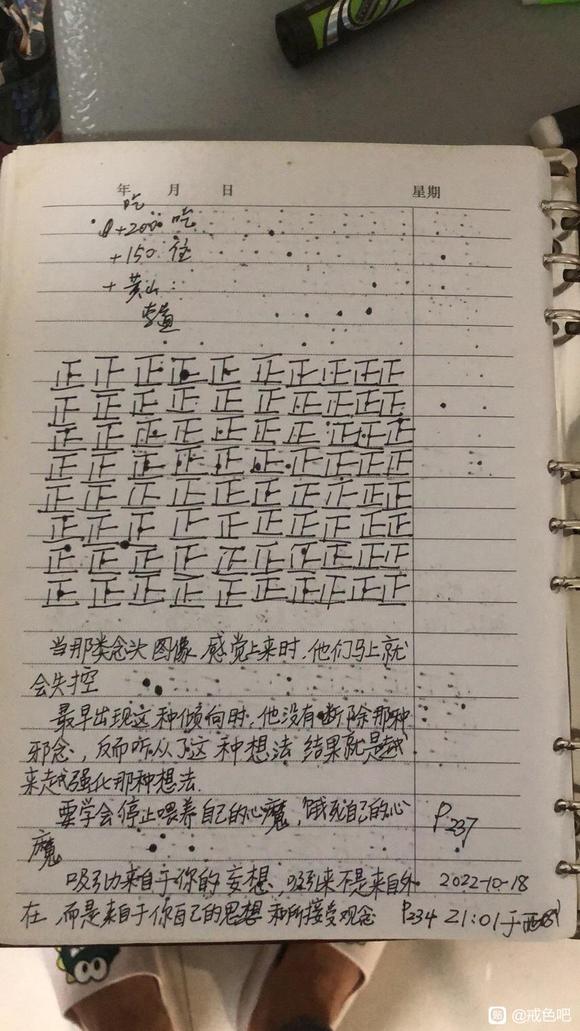 年 月 日 星期
吃
+200 吃
+150 住
+ 黄山
正 正 正 正 正 正 正 正 正 正
正 正 正 正 正 正 正 正 正 正
正 正 正 正 正 正 正 正 正 正
正 正 正 正 正 正 正 正 正 正
正 正 正 正 正 正 正 正 正 正
正 正 正 正 正 正 正 正 正 正
正 正 正 正 正 正 正 正 正 正
正 正 正 正 正 正 正 正 正 正
当那类念头图像、感觉上来时,他们马上就
会失控
最早出现这种倾向时,他没有断除那种
邪念,反而听从了这种想法 结果就是越
来越强化那种想法.
要学会停止喂养自己的心魔,饿死自己的心 P237
魔
吸引力来自于你的妄想、吸引来不是来自外 2022-10-18
在 而是来自于你自己的思想和所接受观念 P234 21:01于西
贴 @戒色吧